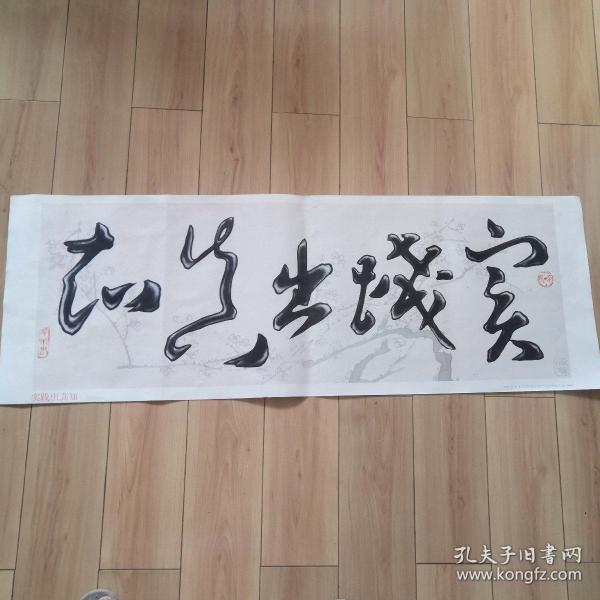 实践出真知
实践出真知
孔夫子旧书网
www.kongfz.com